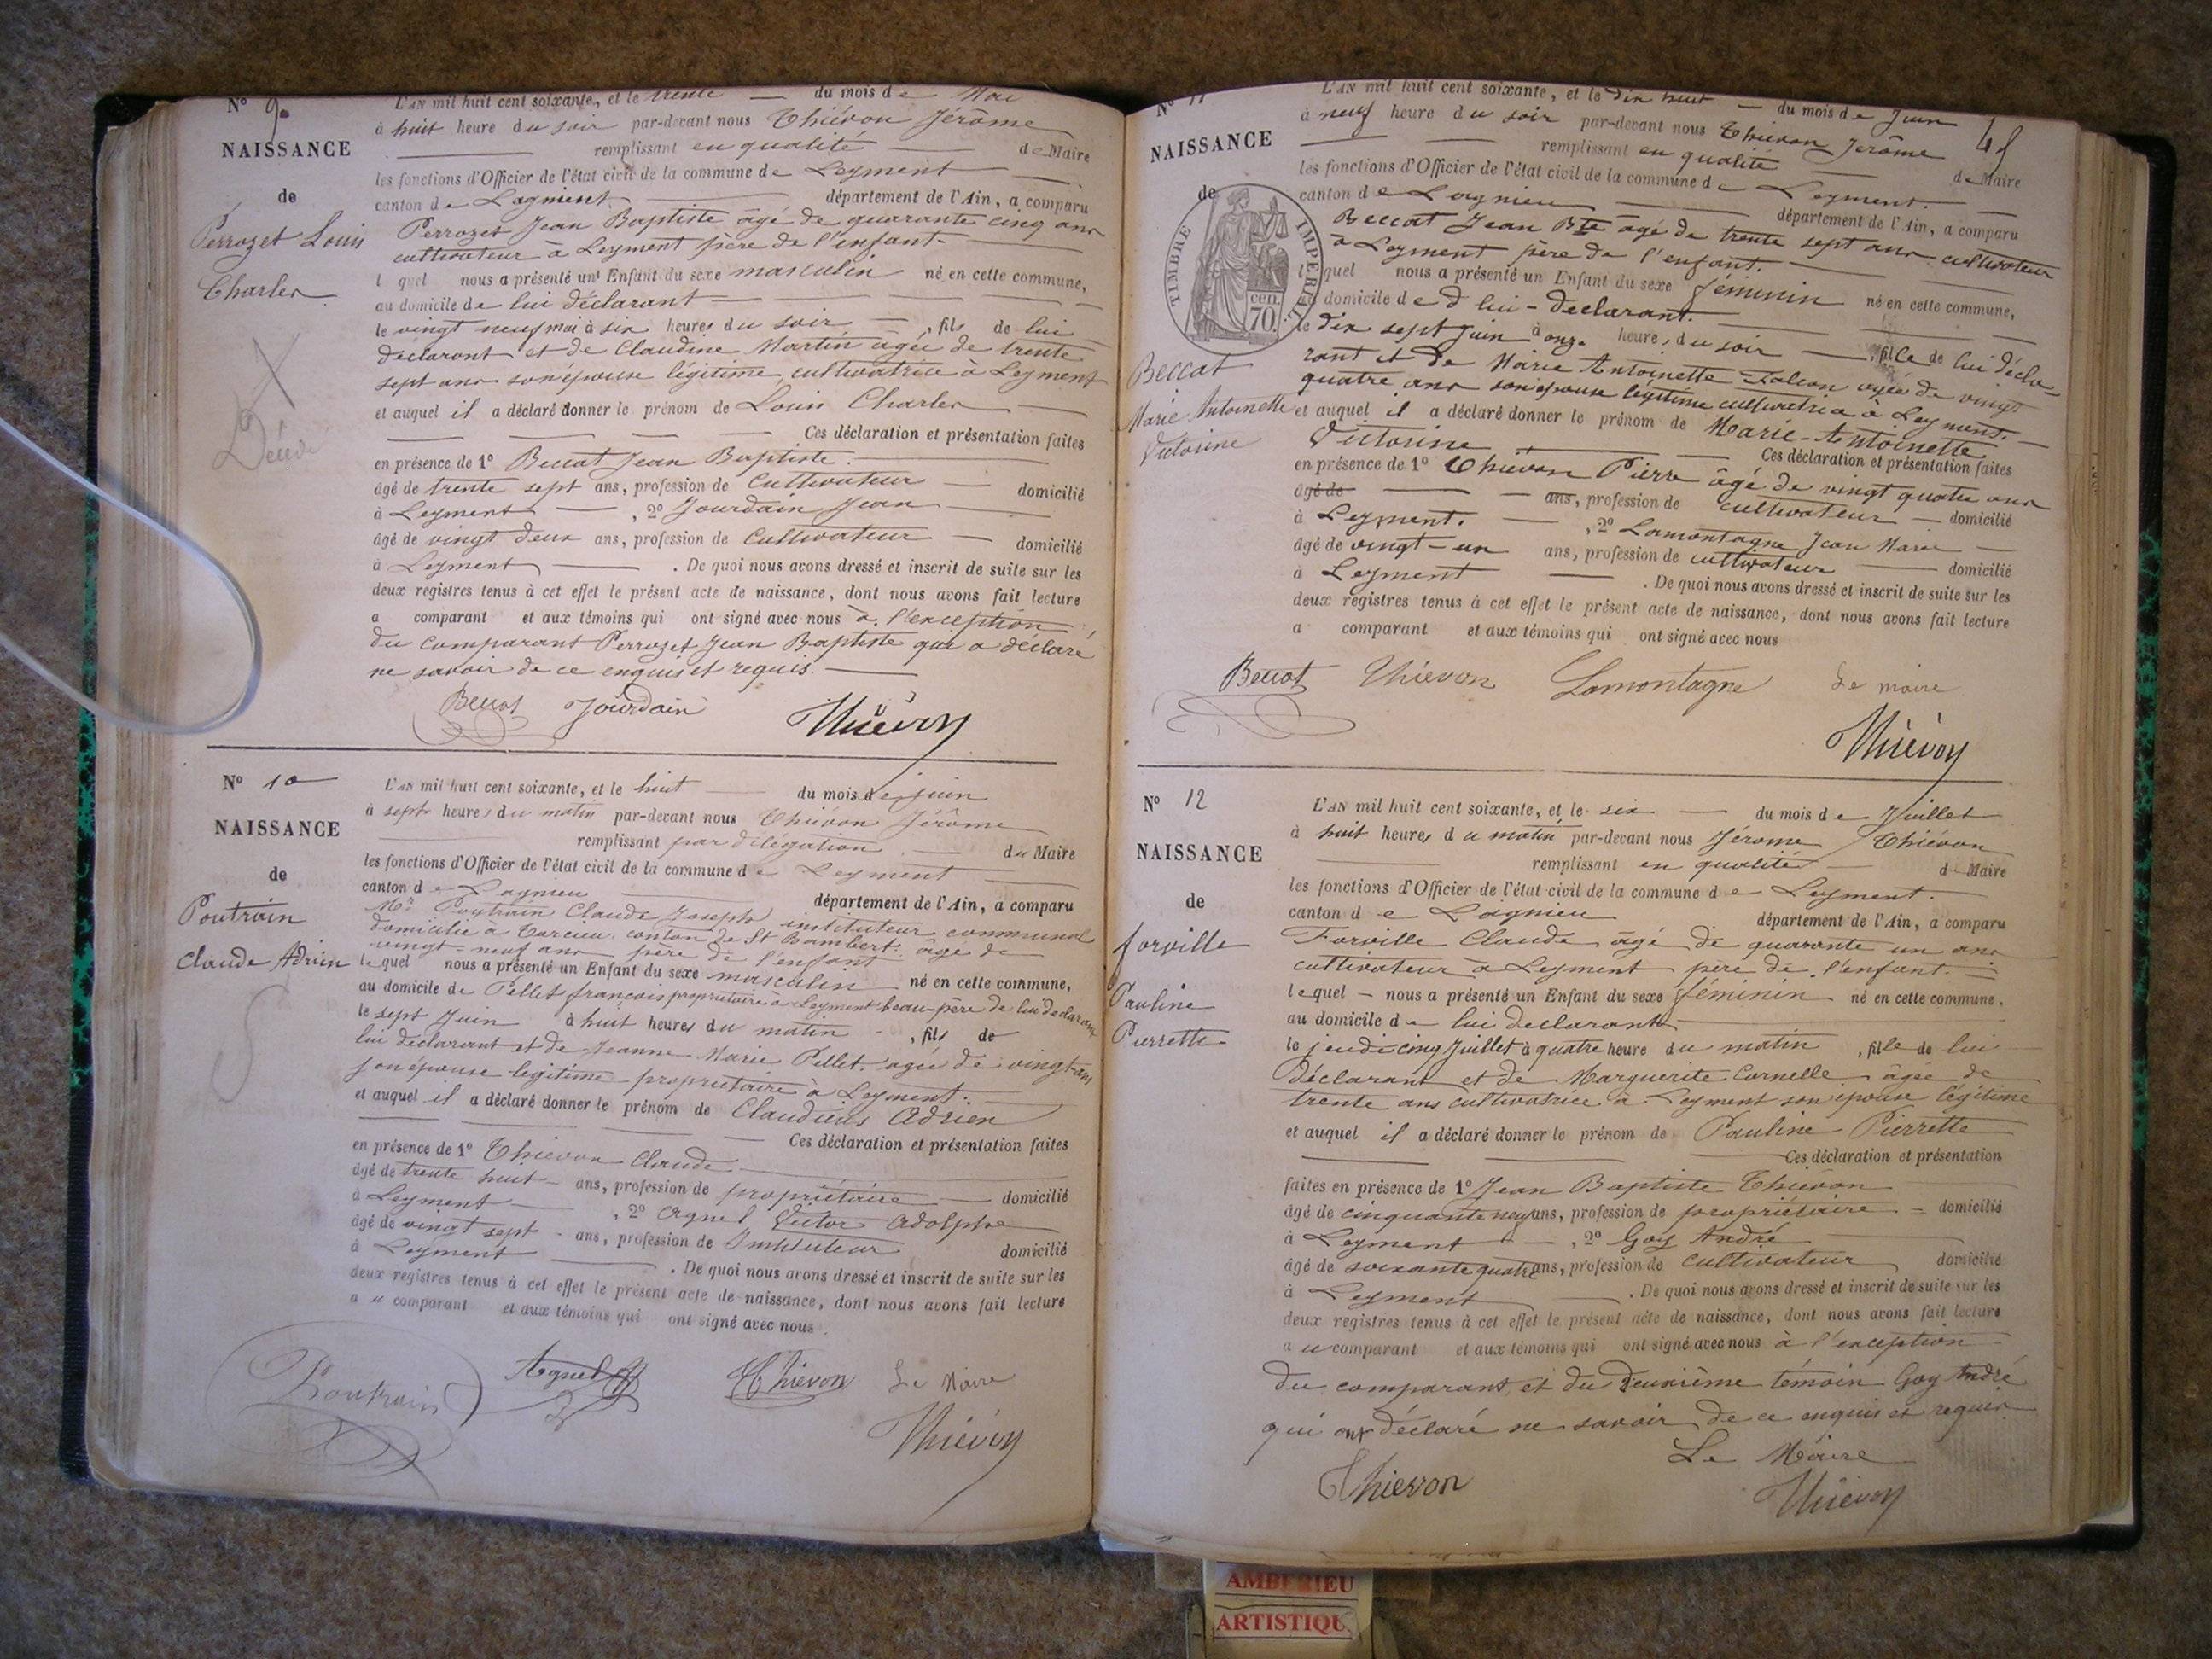 N° 9.
NAISSANCE
de
Perrozet Louis
Charles
Décédé
L'AN mil huit cent soixante, et le trente du mois de Mai
à huit heure du soir par-devant nous Thiévon Jérôme
remplissant en qualité de Maire
les fonctions d'Officier de l'état civil de la commune de Leyment
canton de Lagnieu département de l'Ain, a comparu
Perrozet Jean Baptiste âgé de quarante cinq ans
cultivateur à Leyment père de l'enfant
lequel nous a présenté un Enfant du sexe masculin né en cette commune,
au domicile de lui déclarant
le vingt neuf mai à six heures du soir, fils de lui
déclarant et de Claudine Martin âgée de trente
sept ans son épouse légitime, cultivatrice à Leyment
et auquel il a déclaré donner le prénom de Louis Charles
Ces déclaration et présentation faites
en présence de 1° Beccat Jean Baptiste
âgé de trente sept ans, profession de Cultivateur domicilié
à Leyment, 2° Jourdain Jean
âgé de vingt deux ans, profession de Cultivateur domicilié
à Leyment. De quoi nous avons dressé et inscrit de suite sur les
deux registres tenus à cet effet le présent acte de naissance, dont nous avons fait lecture
a comparant et aux témoins qui ont signé avec nous à l'exception
du comparant Perrozet Jean Baptiste qui a déclaré
ne savoir de ce enquis et requis.
Beccat Jourdain Thiévon
N° 10
NAISSANCE
de
Poutrain
Claude Adrien
L'AN mil huit cent soixante, et le huit du mois de juin
à sept heures du matin par-devant nous Thiévon Jérôme
remplissant par délégation du Maire
les fonctions d'Officier de l'état civil de la commune de Leyment
canton de Lagnieu département de l'Ain, a comparu
Mr Poutrain Claude Joseph instituteur communal
domicilié à Torcieu canton de St Rambert âgé de
vingt-neuf ans père de l'enfant
lequel nous a présenté un Enfant du sexe masculin né en cette commune,
au domicile de Pellet françois propriétaire à Leyment beau-père de lui déclarant
le sept Juin à huit heures du matin, fils de
lui déclarant et de Jeanne Marie Pellet âgée de vingt-ans
son épouse légitime propriétaire à Leyment.
et auquel il a déclaré donner le prénom de Claudius Adrien
Ces déclaration et présentation faites
en présence de 1° Thievon Claude
âgé de trente huit ans, profession de propriétaire domicilié
à Leyment, 2° Agnel Victor Adolphe
âgé de vingt sept ans, profession de Instituteur domicilié
à Leyment. De quoi nous avons dressé et inscrit de suite sur les
deux registres tenus à cet effet le présent acte de naissance, dont nous avons fait lecture
a u comparant et aux témoins qui ont signé avec nous.
Poutrain Agnel Thievon Le Maire
Thiévon
N° 11
NAISSANCE
de
TIMBRE IMPERIAL
70 cen.
Beccat
Marie Antoinette
Victorine
L'AN mil huit cent soixante, et le dix huit du mois de Juin
à neuf heure du soir par-devant nous Thievon Jérôme
remplissant en qualité de Maire
les fonctions d'Officier de l'état civil de la commune de Leyment.
canton de Lagnieu département de l'Ain, a comparu
Beccat Jean Bte âgé de trente sept ans cultivateur
à Leyment père de l'enfant.
lequel nous a présenté un Enfant du sexe féminin né en cette commune,
domicile de d lui-déclarant.
le dix sept Juin à onze heures du soir, fille de lui décla-
rant et de Marie Antoinette Falcon agée de vingt
quatre ans son épouse légitime cultivatrice à Leyment.
et auquel il a déclaré donner le prénom de Marie-Antoinette
Victorine
Ces déclaration et présentation faites
en présence de 1° Thievon Pierre âgé de vingt quatre ans
âgé de ans, profession de cultivateur domicilié
à Leyment., 2° Lamontagne Jean Marie
âgé de vingt-un ans, profession de cultivateur domicilié
à Leyment. De quoi nous avons dressé et inscrit de suite sur les
deux registres tenus à cet effet le présent acte de naissance, dont nous avons fait lecture
a comparant et aux témoins qui ont signé avec nous
Beccat Thievon Lamontagne Le maire
Thiévon
N° 12
NAISSANCE
de
forville
Pauline
Pierrette
L'AN mil huit cent soixante, et le six du mois de Juillet
à huit heures du matin par-devant nous Jérome Thiévon
remplissant en qualité de Maire
les fonctions d'Officier de l'état civil de la commune de Leyment.
canton de Lagnieu département de l'Ain, a comparu
Forville Claude âgé de quarante un ans
cultivateur à Leyment père de l'enfant.
lequel nous a présenté un Enfant du sexe féminin né en cette commune.
au domicile de lui déclarant
le jeudi cinq Juillet à quatre heure du matin, fille de lui
déclarant et de Marguerite Cornelle âgée de
trente ans cultivatrice à Leyment son épouse légitime
et auquel il a déclaré donner le prénom de Pauline Pierrette
Ces déclaration et présentation
faites en présence de 1° Jean Baptiste Thiévon
âgé de cinquante neuf ans, profession de propriétaire domicilié
à Leyment, 2° Goy André
âgé de soixante quatre ans, profession de cultivateur domicilié
à Leyment. De quoi nous avons dressé et inscrit de suite sur les
deux registres tenus à cet effet le présent acte de naissance, dont nous avons fait lecture
a u comparant et aux témoins qui ont signé avec nous à l'exception
du comparant et du deuxième témoin Goy André
qui ont déclaré ne savoir de ce enquis et requis
Le Maire
Thievon Thiévon
AMBERIEU
ARTISTIQU